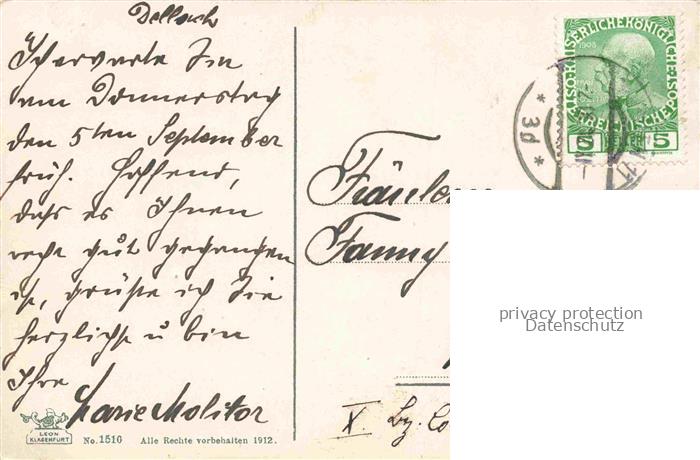 Dellach
Ich erwarte Sie
am Donnerstag
den 5ten September
früh. Hoffend,
daß es Ihnen
recht gut gegangen
ist, grüße ich Sie
herzlichst u bin
Ihre
Marie Molitor
LEON
KLAGENFURT
No. 1510 Alle Rechte vorbehalten 1912.
KAISERLICHE KÖNIGLICHE
ÖSTERREICHISCHE POST
1908
5 5
* 3d *
Fräulein
Fanny
X. Bz.
privacy protection
Datenschutz